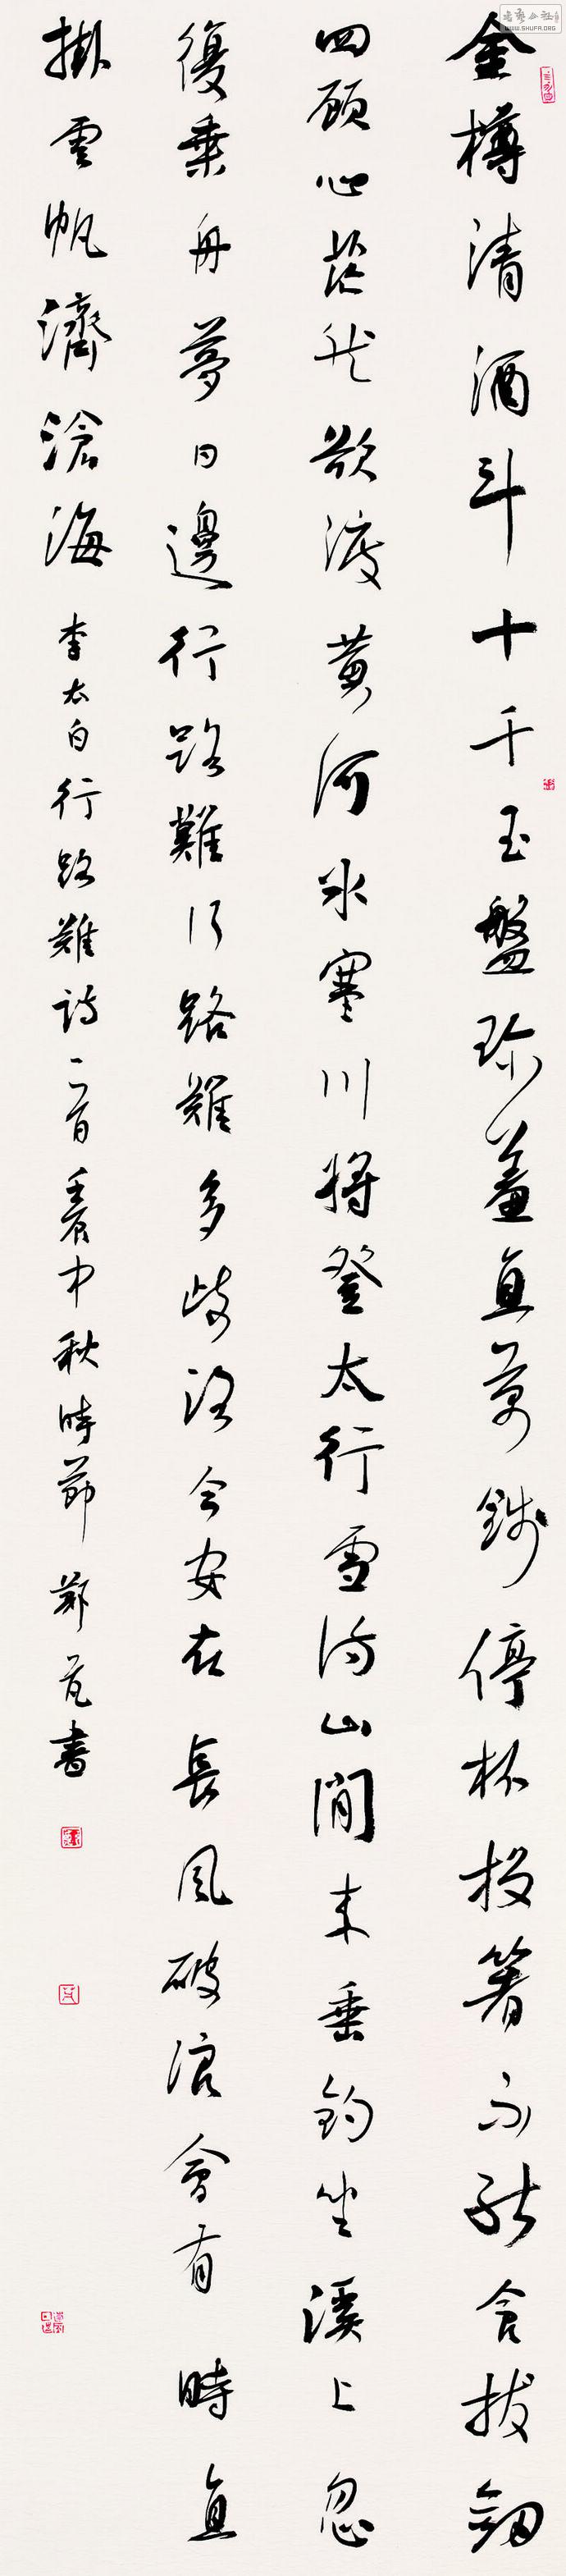 金樽清酒斗十千玉盤珍羞直萬錢停杯投箸不能食拔劍
四顧心茫然欲渡黄河冰塞川將登太行雪滿山閒来垂釣坐溪上忽
復乘舟夢日邊行路難行路難多歧路今安在長風破浪會有時直
掛雲帆濟滄海 李太白行路難詩一首 壬辰中秋時節 鄭 書
WWW.SHUFA.ORG